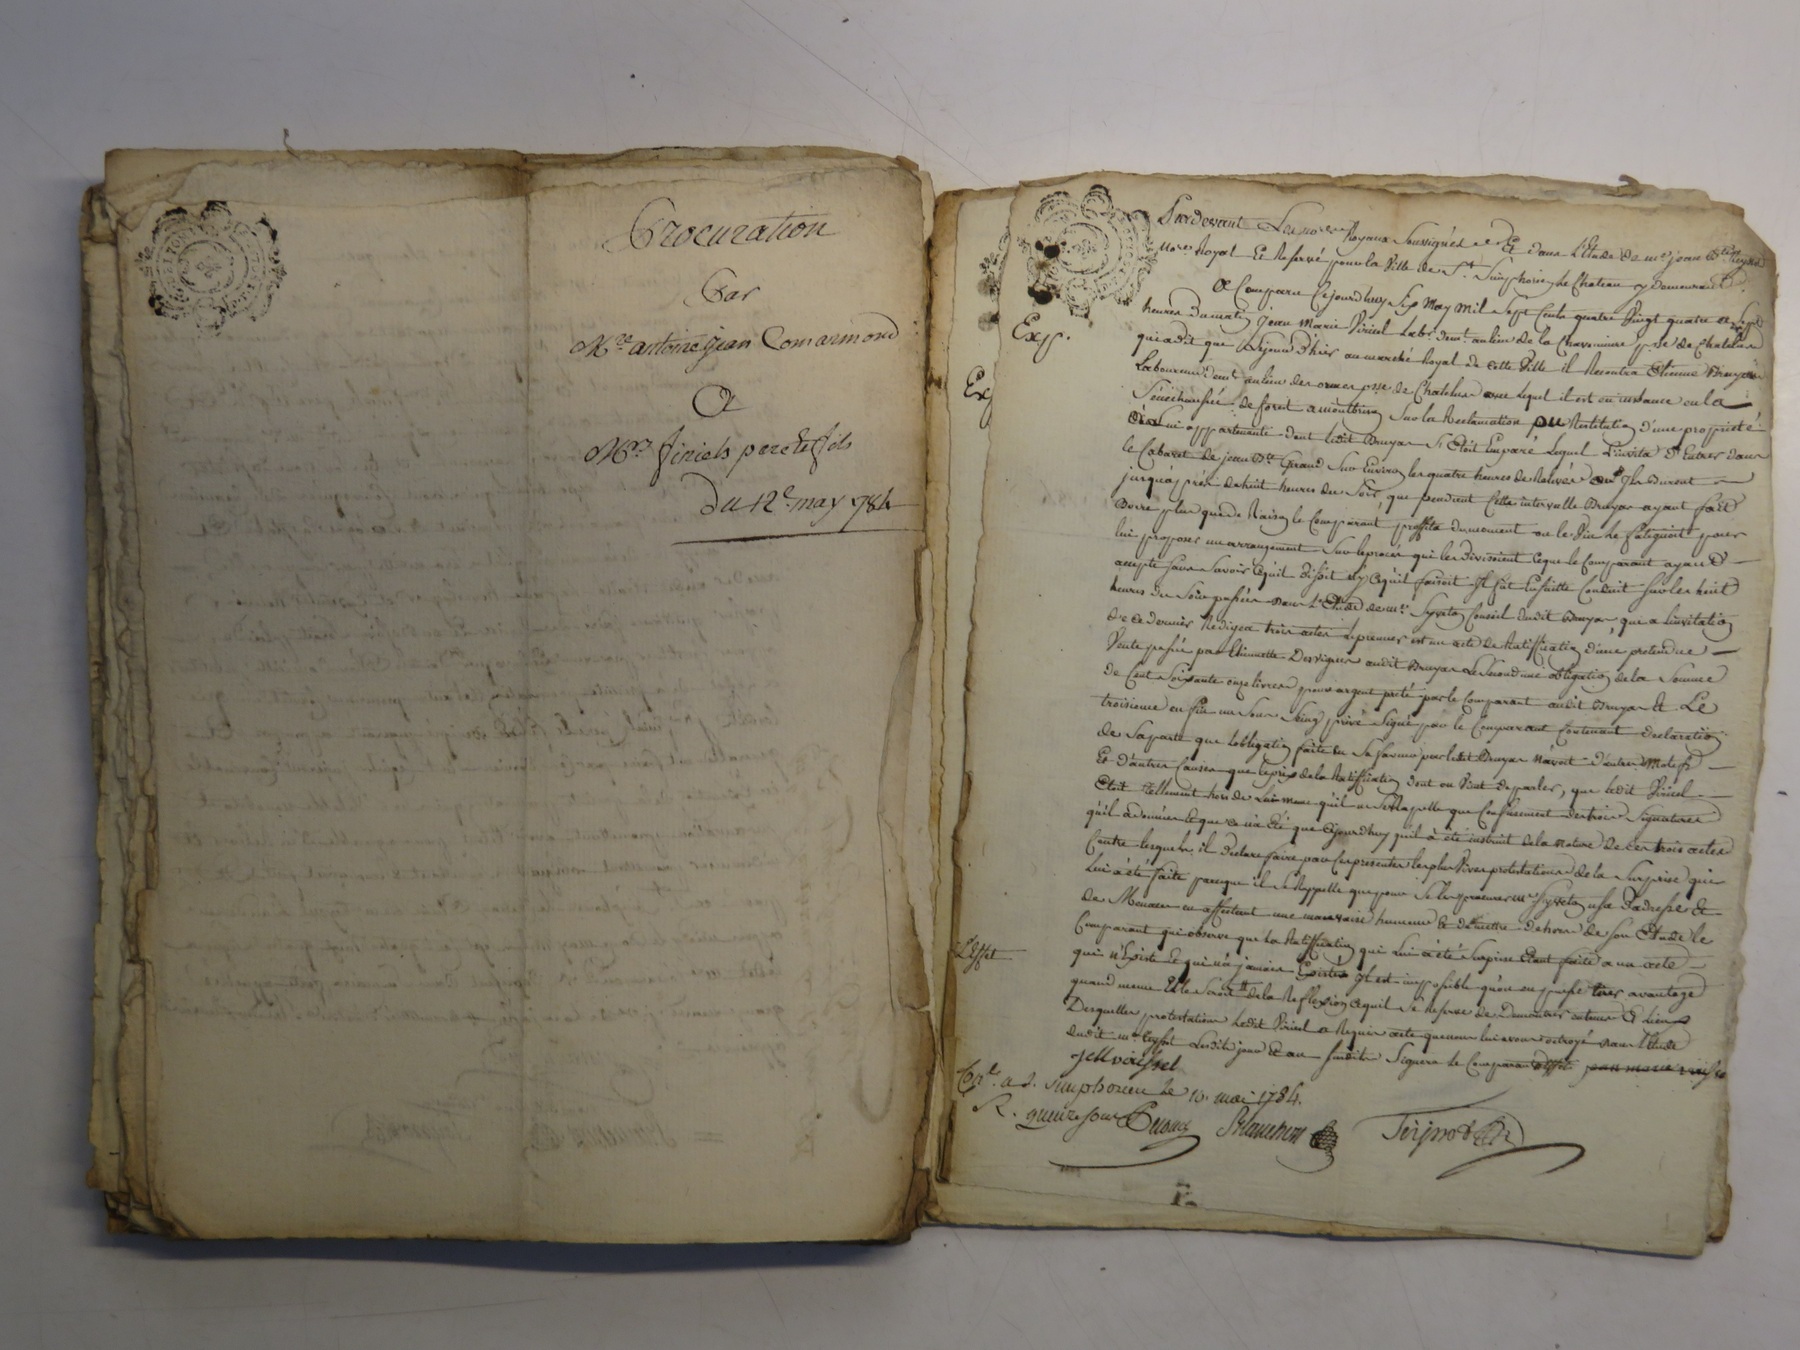 Procuration
Par
Mre antoine jean Comarmond
A
Mrs finiels pere & fils
Du 12e may 784
Exp.
Exp
L'effet
Pardevant Les nores Royaux Soussignés Et dans L'Etude de me jean Bte
nore Royal Et Reservé pour la Ville de St Simphorien le Chateau y demeurant
A Comparu Cejourdhuy Six May Mil Sept Cents quatre Vingt quatre a Sept
heures du matin Jean Marie Viricel Labr demt au lieu de la p.sse de Chatelus
qui a dit que Le jour d'hier au marché Royal de cette Ville il Rencontra Etienne Bruyas
Laboureur demt au lieu des p.sse de Chatelus avec lequel il est en instance en la
Sénéchaussée de forest a montbrison Sur la Reclamation ou Restitution d'une propriété
à lui appartenante dont ledit Bruyas S'Etoit Emparé Lequel L'invita D'Entrer dans
le Cabaret de jean Bte Grand Sur Environ les quatre heures de Relevée ou Ils Burent
jusqu'à près de huit heures du Soir, que pendant Cette intervalle Bruyas ayant fait
Boire plus que de Raison le Comparant proffita du moment ou le Vin Le fatiguoit pour
lui proposer un arrangement Sur le procès qui les Divisoient Ceque le Comparant ayant
accepté Sans Savoir Cequil disoit ny Cequ'il faisoit Il fut Ensuitte Conduit Sur les huit
heures du Soir passées dans L'Etude de me Syveton Conseil dudit Bruyas, qui a Linvitation
de Ce dernier Redigea trois actes le premier est un acte de Ratiffication d'une pretendue
Vente passée par Etiennette Desvignes audit Bruyas Le Second une obligation de la Somme
de Cent Soixante onze livres pour argent preté par le Comparant audit Bruyas Et Le
troisieme en fin un Sous Seing privé Signé par le Comparant Contenant declaration
de Sa part que Lobligation faite en Sa faveur par ledit Bruyas n'avoit d'autres Motifs
Et d'autres Causes que le prix de la Ratiffication dont on Vient de parler, que ledit Viricel
Etoit tellement hors de Lui meme qu'il ne Se Rappelle que Confusement des trois Signatures
qu'il a données Et que Ce n'a Eté que Cejourdhuy qu'il à été instruit de la nature de Ces trois actes
Contre lesquels il declare faire par Ces presentes les plus Vives protestations de la Surprise qui
Lui à été faite parceque il Se Rappelle que pour Se les procurer me Syveton usa D'adresse Et
de Menaces en affectant une mauvaise humeur Et de Mettre dehors de son Etude le
Comparant qui observe que La Ratiffication qui Lui a été Surprise Etant faite a un acte
qui n'Existe Et qui n'a jamais Existé Il est impossible qu'on en puisse tirer avantage
quand meme Elle Seroit de la Reflexion Cequil Se Reserve de Demontrer en tems Et Lieu
Desquelles protestations Ledit Viricel a Requis acte que nous lui avons octroyé dans l'Etude
dudit me Lesdits jour Et an Susdits Signera le Comparant
jm viricel
Crlé a S. Simphorien le 10. mai 1784.
R. quinze sous
Blanchon